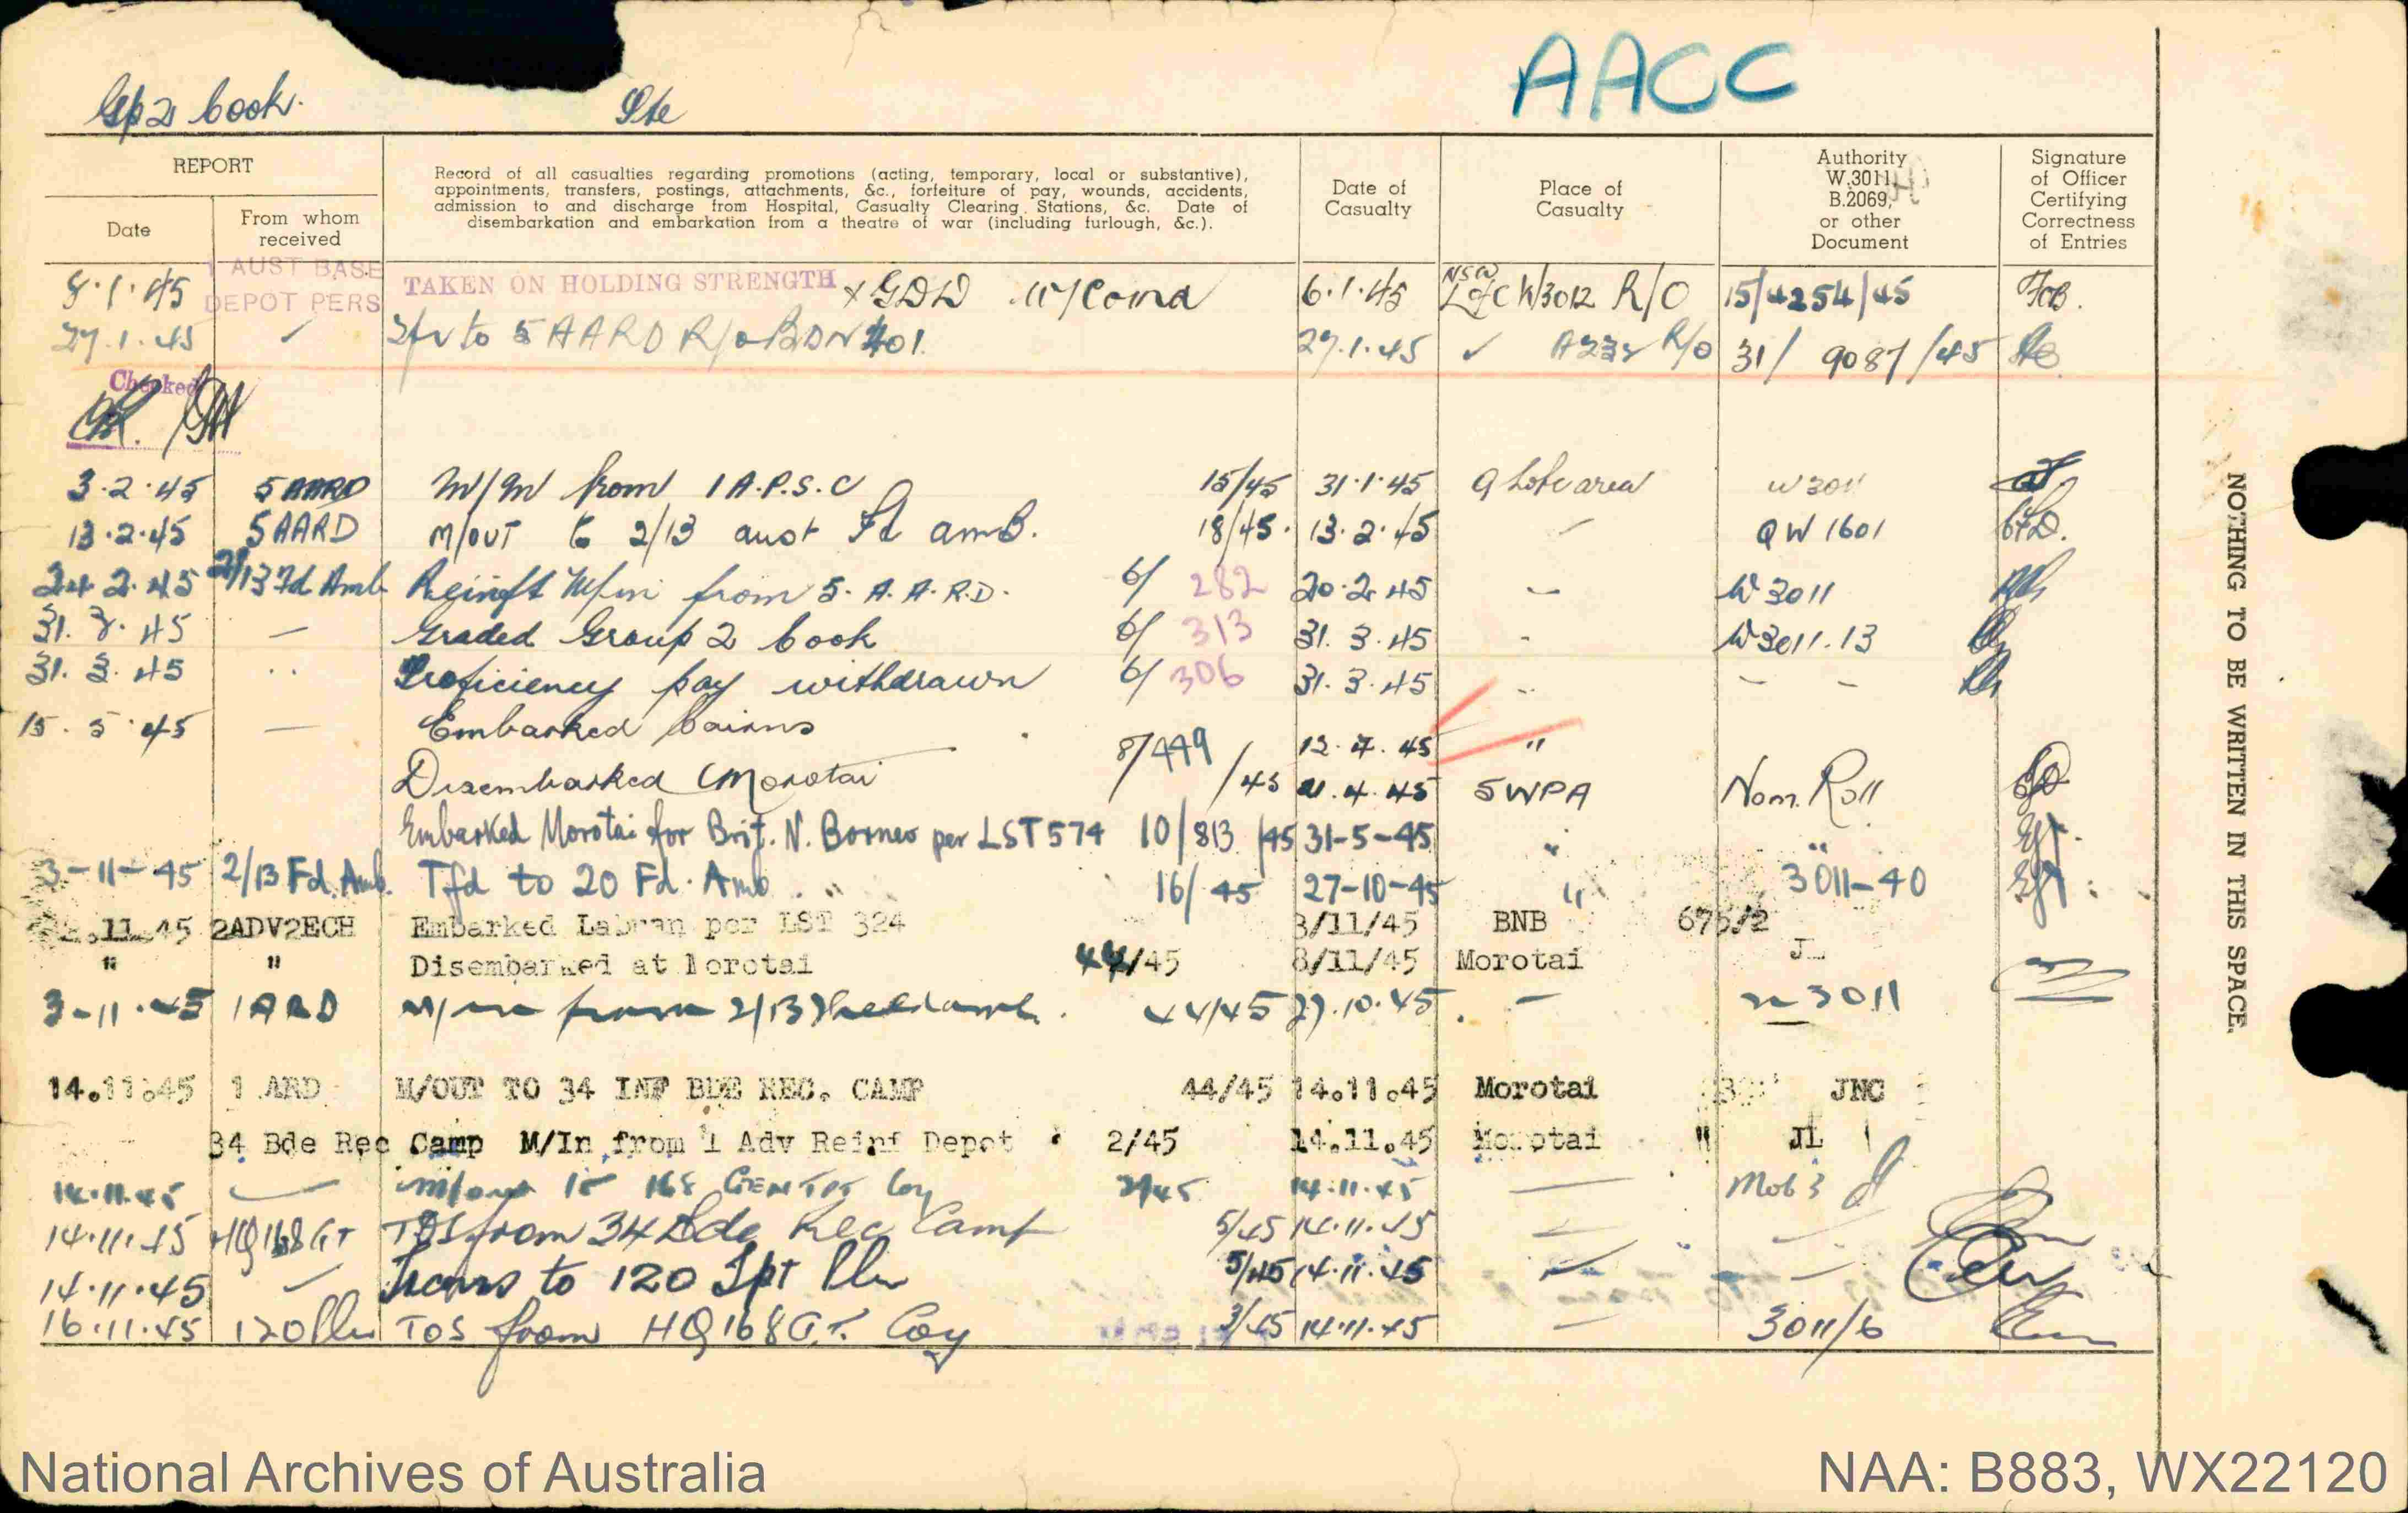 AACC
Gp 2 book. Pte
REPORT
Date
From whom received
Record of all casualties regarding promotions (acting, temporary, local or substantive),
appointments, transfers, postings, attachments, &c., forfeiture of pay, wounds, accidents,
admission to and discharge from Hospital, Casualty Clearing Stations, &c. Date of
disembarkation and embarkation from a theatre of war (including furlough, &c.).
Date of Casualty
Place of Casualty
Authority W.3011, B.2069, or other Document
Signature of Officer Certifying Correctness of Entries
8.1.45 1 AUST BASE DEPOT PERS TAKEN ON HOLDING STRENGTH x GDD 6.1.45 NSW L of C W3012 R/O 15/4254/45
27.1.45 to 5 AARD R/O 27.1.45 R/O 31/ 9087/45
Checked
3.2.45 5 AARD M/In from 1 A.P.S.C 15/45 31.1.45 Q L of C area W3011
13.2.45 5 AARD M/OUT to 2/13 aust Fd amB. 18/45. 13.2.45 QW 1601
24.2.45 2/13 Fd Amb Reinft M/in from 5. A.A.R.D. 6/ 282 20.2.45 W3011
31.3.45 — Graded Group 2 book 6/ 313 31.3.45 W3011.13
31.3.45 Proficiency pay withdrawn 6/ 306 31.3.45
15.5.45 — Embarked Cairns 8/449 /45 12.4.45 "
Disembarked Morotai 21.4.45 SWPA Nom. Roll
Embarked Morotai for Brit. N. Borneo per LST 574 10/813/45 31-5-45 " "
3-11-45 2/13 Fd. Amb. Tfd to 20 Fd. Amb. " 16/45 27-10-45 " 3011-40
.11.45 2ADV2ECH Embarked Labuan per LST 324 3/11/45 BNB 675/2
" " Disembarked at Morotai 44/45 8/11/45 Morotai JL
3-11-45 1 ARD M/in from 2/13 Field amb. 44/45 27.10.45 — 3011
14.11.45 1 ARD M/OUT TO 34 INF BDE REC. CAMP 44/45 14.11.45 Morotai JNC
34 Bde Rec Camp M/In from 1 Adv Reinf Depot 2/45 14.11.45 Morotai " JL
14.11.45 m/out to 168 GEN TPT Coy 2/45 14.11.45 — Mob 3
14.11.45 HQ 168 GT TOS from 34 Bde Rec Camp 5/45 14.11.45
14.11.45 Trans to 120 Tpt Pln 5/45 14.11.45
16.11.45 120 Pln TOS from HQ 168 G.T. Coy 3/45 14.11.45 — 3011/6
NOTHING TO BE WRITTEN IN THIS SPACE.
National Archives of Australia
NAA: B883, WX22120